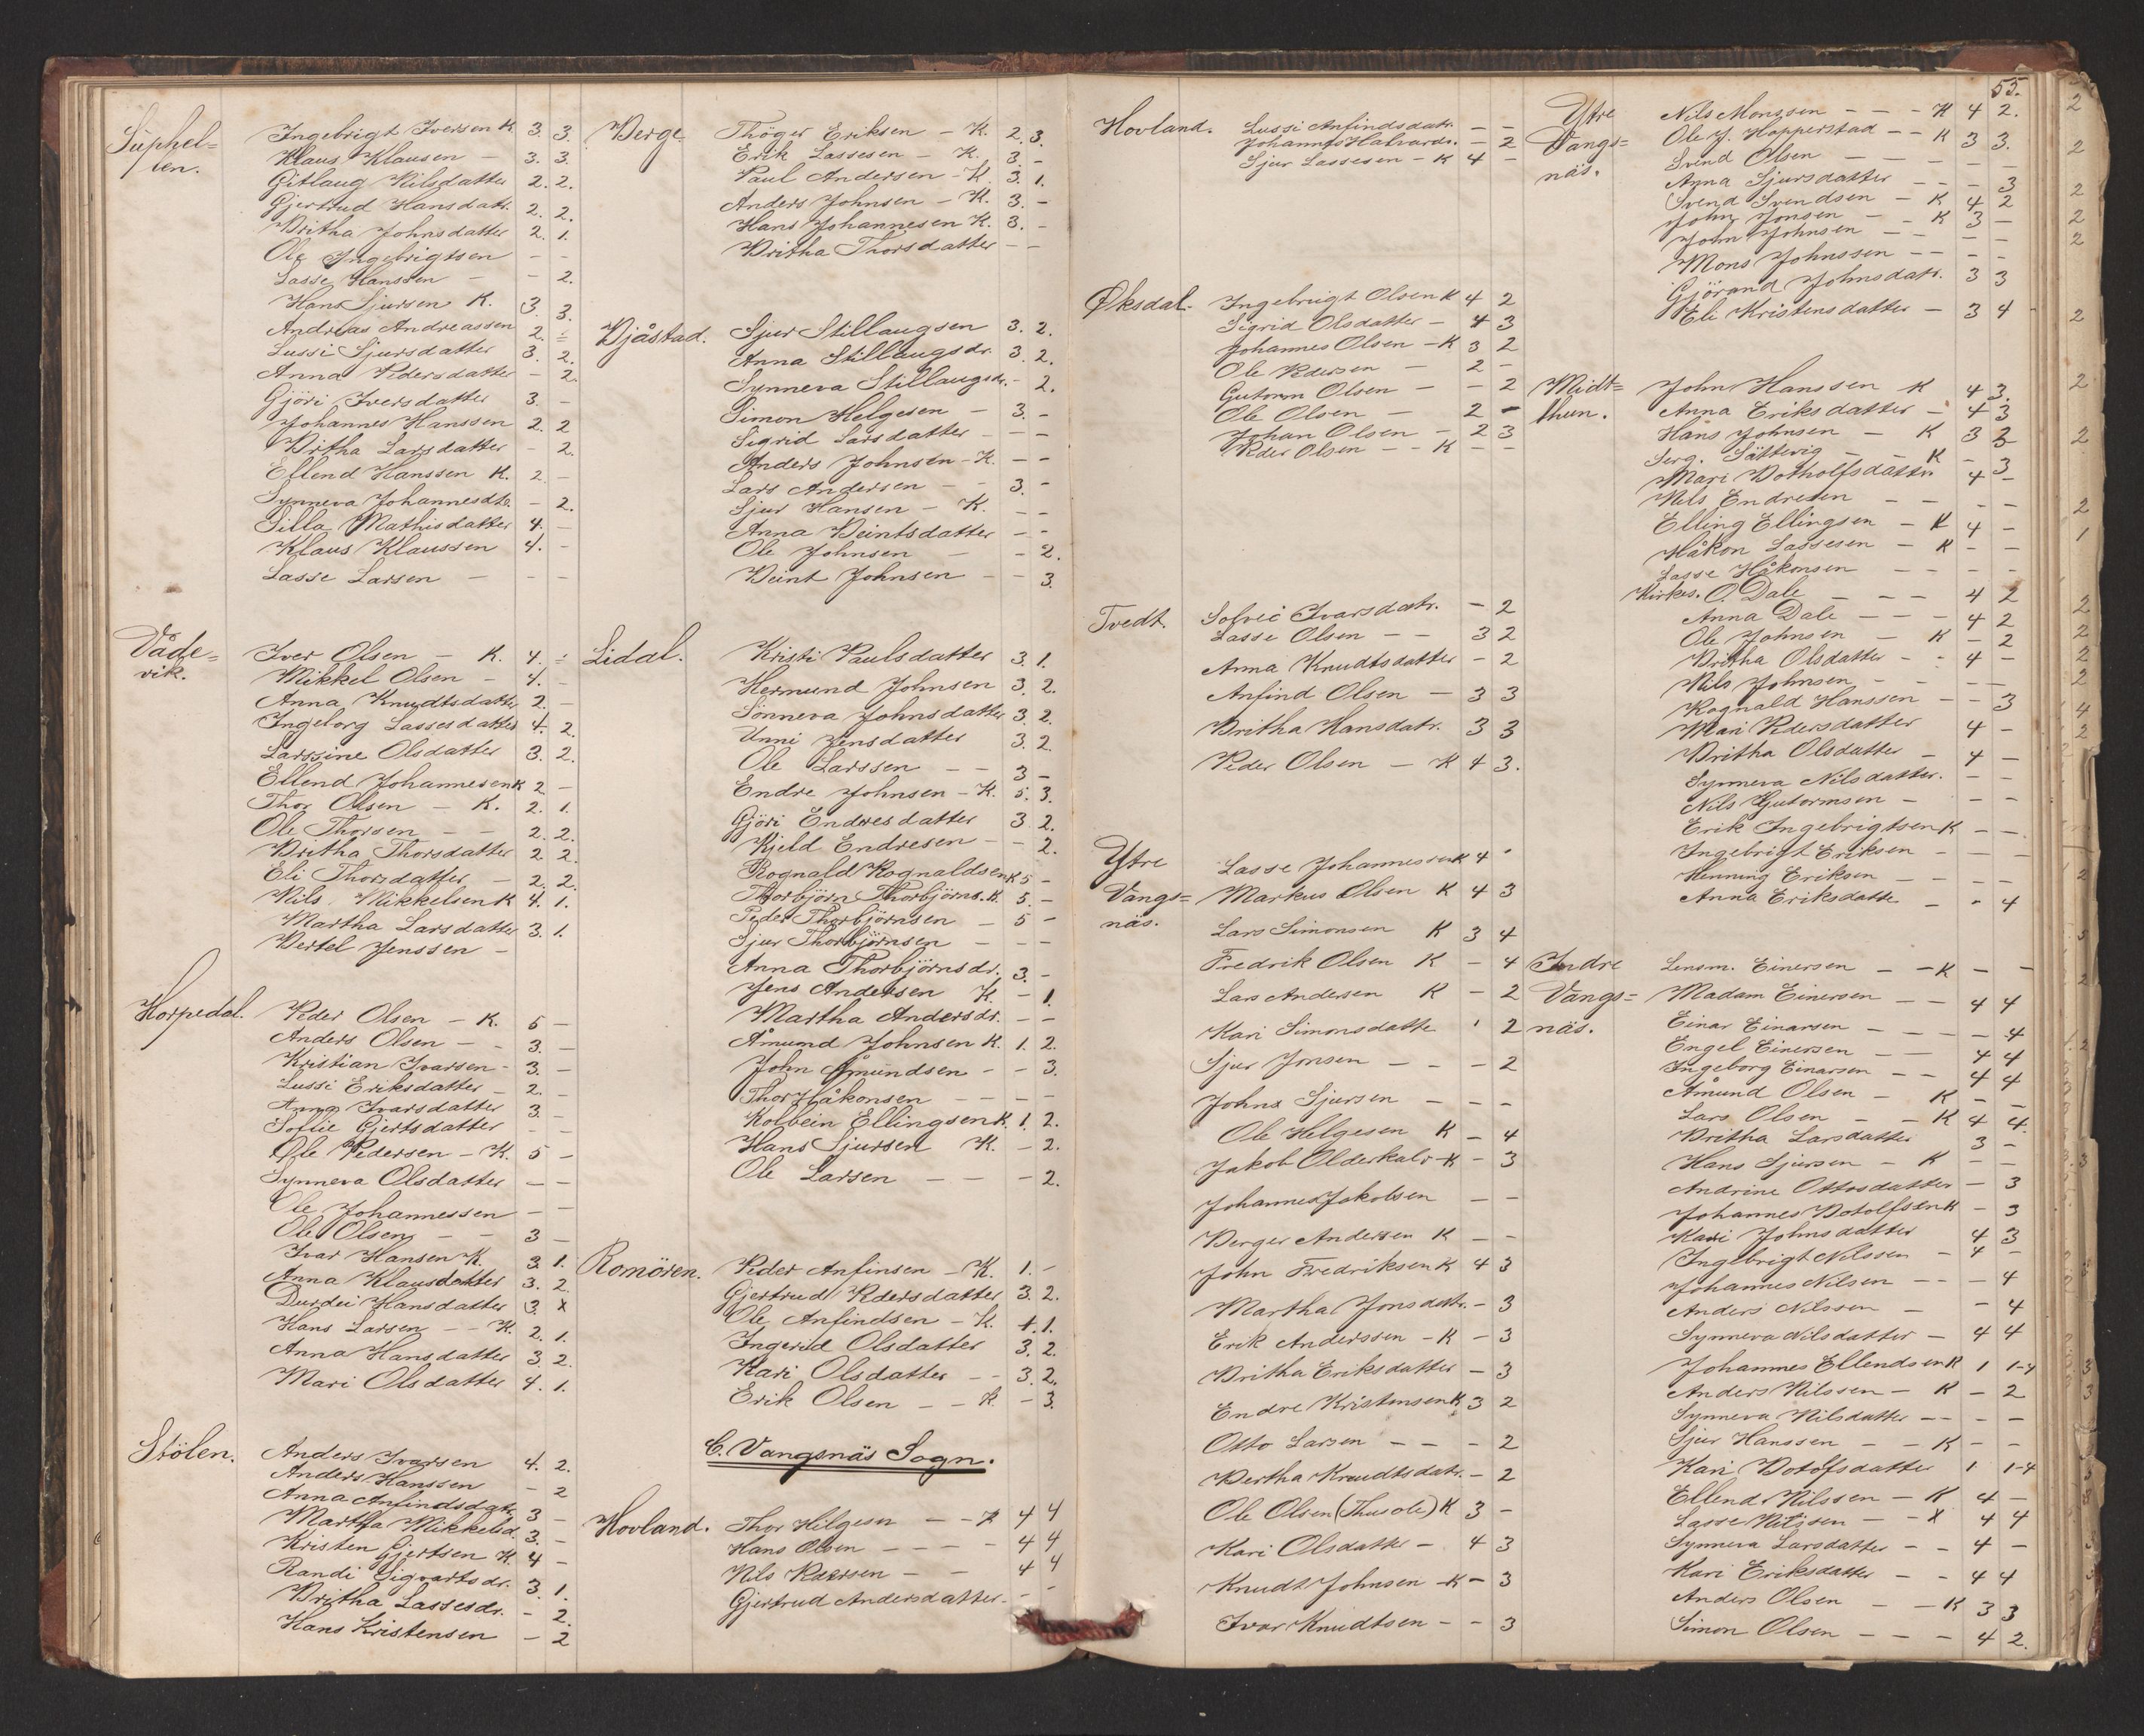 Suphel=
len.
Ingebrigt Iversen K. 3. 3.
Klaus Klausen - 3. 3.
Gitlaug Nilsdatter 2. 2.
Gjertrud Hansdatr. 2. 2.
Britha Johnsdatter 2. 1.
Ole Ingebrigtsen - -
Lasse Hanssen - - 2.
Hans Sjursen K. 3. 3.
Andreas Andreassen 2. -
Lussi Sjursdatter 3. 2.
Anna Pedersdatter - 2.
Gjöri Iversdatter 3. -
Johannes Hanssen 2. 2
Britha Larsdatter - 2.
Ellend Hanssen K. 2. -
Synneva Johannesdtr. - 2.
Silla Mathisdatter 4. -
Klaus Klaussen 4. -
Lasse Larsen - - -
Våde=
vik.
Iver Olsen - K. 4. -
Mikkel Olsen - 4. -
Anna Knudtsdatter 2. -
Ingeborg Lassesdatter 4. 2.
Larssine Olsdatter 3. 2.
Ellend Johannesen K 2 -
Thor Olsen - K. 2. 1.
Ole Thorsen - - 2. 2.
Britha Thorsdatter 2. 2.
Eli Thorsdatter - 2. 2.
Nils Mikkelsen K 4. 1.
Martha Larsdatter 3. 1.
Bertel Jenssen -
Horpedal.
Peder Olsen - K. 5 -
Anders Olsen - - 3. -
Kristian Ivarsen - 3. -
Lussi Eriksdatter - 2. -
Anna Ivarsdatter 3. -
Soflie Gjertsdatter - -
Ole Pedersen - K. 5 -
Synneva Olsdatter - -
Ole Johannessen - -
Ole Olsen - - 3 -
Ivar Hansen K. 3. 1.
Anna Klausdatter 3. 2.
Durdei Hansdatter 3. x
Hans Larsen - - K. 2. 1.
Anna Hansdatter 3. 2.
Mari Olsdatter 4. 1.
Stölen.
Anders Ivarsen 4. 2.
Anders Hanssen - 2
Anna Anfindsdatr. 3 -
Martha Mikkelsd. 3. -
Kristen Gjertsen K. 4 -
Randi Sigvartsdr. 3. 1.
Britha Lassesdr. - 2.
Hans Kristensen - 2
Berge
Thöger Eriksen - K. 2. 3.
Erik Lassesen - K. 3. -
Paul Andersen - K. 3. 1.
Anders Johnsen - K. 3. -
Hans Johannesen K. 3. -
Britha Thorsdatter - -
Bjåstad.
Sjur Stillaugsen 3. 2.
Anna Stillaugsdr. 3. 2.
Synneva Stillaugsdr. - 2.
Simon Helgesen - 3. -
Sigrid Larsdatter - - -
Anders Johnsen - K. - -
Lars Andersen - - 3. -
Sjur Hansen - K. - -
Anna Beintsdatter - -
Ole Johnsen - - 2.
Beint Johnsen - - 3.
Lidal.
Kristi Paulsdatter 3. 1.
Hermund Johnsen 3. 2.
Sönneva Johnsdatter 3. 2.
Unni Jensdatter 3. 2.
Ole Larssen - - 3 -
Endre Johnsen - K. 5. 3.
Gjöri Endresdatter 3 2.
Kjeld Endresen - - 2.
Rognald Rognaldsen K 5 -
Thorbjörn Thorbjörns. K. 5. -
Peder Thorbjörnsen - 5 -
Sjur Thorbjörnsen - - -
Anna Thorbjörnsdr. 3. -
Jens Andersen K. - 1.
Martha Andersdr. - -
Åmund Johnsen K. 1. 2.
John Åmundsen - - 3.
Thor Håkonsen - - - -
Kolbein Ellingsen K. 1. 2.
Hans Sjursen K. - 2.
Ole Larsen - - - 2.
Romören.
Peder Anfinsen - K. 1. -
Gjertrud Pedersdatter 3. 2.
Ole Anfindsen - K. 4. 1.
Ingerid Olsdatter 3. 2.
Kari Olsdatter - - 3. 2.
Erik Olsen - - K. - 3.
C. Vangsnäs Sogn.
Hovland.
Thor Hilgesen - - K 4 4
Hans Olsen - - - - 4 4
Nils Pedersen - - 4 4
Gjertrud Andersdatter. - -
Hovland.
Lussi Anfindsdatr. - -
Johannes Halvards. - 2
Sjur Lassesen - K 4 -
Øksdal.
Ingebrigt Olsen K 4 2
Sigrid Olsdatter - 4 3
Johannes Olsen - K 3 2
Ole Pedersen - 2 -
Gutorm Olsen - - 2
Ole Olsen - 2 -
Johan Olsen - 2 3
Peder Olsen - - K - -
Tvedt.
Solvei Ivarsdatr. - 2
Lasse Olsen - - 3 2
Anna Knudtsdatter - 2
Anfind Olsen - 3 3
Britha Hansdatr. 3 3
Peder Olsen - K 4 3.
Ytre
Vangs=
näs.
Lasse Johannessen K 4 -
Markus Olsen K 4 3
Lars Simonsen K 3 4
Fredrik Olsen K - 4
Lars Andersen K - 2
Kari Simonsdatter - 2
Sjur Jonsen - - - 2
Johns Sjursen - - -
Ole Helgesen K - 4
Jakob Olderkalv - K - 3
Johannes Jakobsen - -
Berger Andersen K - -
John Fredriksen K 4 3
Martha Jonsdatr. - 3
Erik Anderssen - K - 3
Britha Eriksdatter - 3
Endre Kristensen K 3 2
Otto Larsen - - - 2
Bertha Knudtsdatr. - 2
Ole Olsen (Thusole) K 3 -
Kari Olsdatter - 4 3
Knudt Johnsen - K - 3
Ivar Knudtsen - - 3
55.
Ytre
Vangs=
näs.
Nils Monssen - - - K 4 2.
Ole J. Hopperstad - - K 3 3.
Svend Olsen - - - - -
Anna Sjursdatter - - - 3
Svend Svendsen - K 4 2
John Jonsen - - K 3 -
John Johnsen - - - -
Mons Johnssen - - - -
Gjörand Johnsdatr. 3 3
Eli Kristensdatter - 3 4
Midt=
thun.
John Hanssen K 4 3.
Anna Eriksdatter - 4 3
Hans Johnsen - K 3 3
Serg. Sättevig - - K - 3
Mari Botholfsdattr. 4 -
Nils Endresen - - - -
Elling Ellingsen - K 4 -
Håkon Lassesen - K - -
Lasse Håkonsen - - - -
Kirkes. O. Dale - - - 4 2
Anna Dale - - - 4 2
Ole Johnsen - K - 2
Britha Olsdatter - - 4 -
Nils Johnsen - - - -
Rognald Hanssen - - 3
Mari Pedersdatter 4 -
Britha Olsdatter - 4 -
Synneva Nilsdatter. - -
Nils Gutormsen - - -
Erik Ingebrigtsen K - -
Ingebrigt Eriksen - - -
Henning Eriksen - - - -
Anna Eriksdatter - - 4
Indre
Vangs=
näs.
Lensm. Einersen - - K - -
Madam Einersen - - 4 4
Einar Einarsen - - - - 4
Engel Einersen - - 4 4
Ingeborg Einarsen - - 4 4
Åmund Olsen - K - -
Lars Olsen - - K 4 4.
Britha Larsdatter 3 -
Hans Sjursen - K - -
Andrine Ottosdatter - 3
Johannes Botolfsen K - 3
Kari Johnsdatter 4 3
Ingebrigt Nilssen - 4 -
Johannes Nilsen - - - 4
Anders Nilssen - - 4
Synneva Nilsdatter - 4 4
Johannes Ellendsen K 1 1-4
Anders Nilssen - K - 2
Synneva Nilsdatter - - - -
Sjur Hanssen - - K - -
Kari Botolfsdatter 1 1-4
Ellend Nilssen - K 4 -
Lasse Nilssen - - K 4 4
Synneva Larsdatter - - 4 -
Kari Eriksdatter - - 4 4
Anders Olsen - - K 3 3
Simon Olsen - - - 4 2.